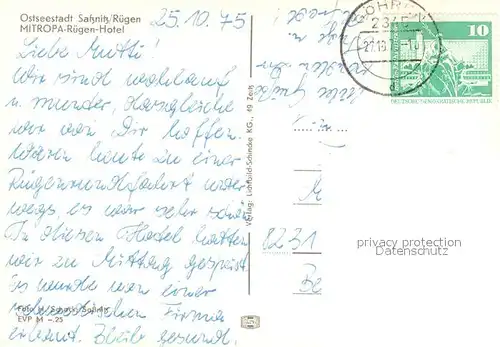 Ostseestadt Saßnitz/Rügen
MITROPA-Rügen-Hotel
25.10.75
Liebe Mutti!
Wir sind wohlauf
u. munter, dasgleiche
wir von Dir hoffen.
Waren heute zu einer
Rügenrundfahrt unter
wegs, es war sehr schön
In diesem Hotel hatten
wir zu Mittag gespeist.
Es wurde von einer
schwedischen Firma
erbaut. Bleib gesund.
EVP M -.25
Verlag: Lichtbild-Schincke KG., 49 Zeitz
Liebe Grüße
2345
10
DEUTSCHE DEMOKRATISCHE REPUBLIK
d
M
8231
Be
privacy protection
DATENSCHUTZ